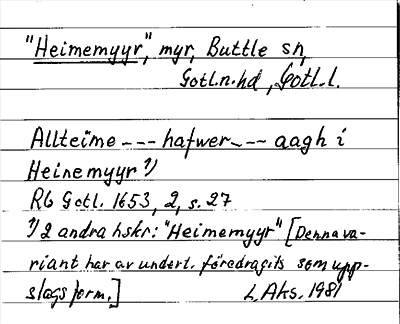 "Heimemyyr", myr, Buttle sn,
Gotl.n.hd, Gotl.l.
Allteime --- hafwer --- aagh i
Heinemyyr 1)
Rb Gotl. 1653, 2, s. 27
1) 2 andra hskr: "Heimemyyr" [Denna va-
riant har av undert. föredragits som upp-
slagsform.] L. Aks. 1981